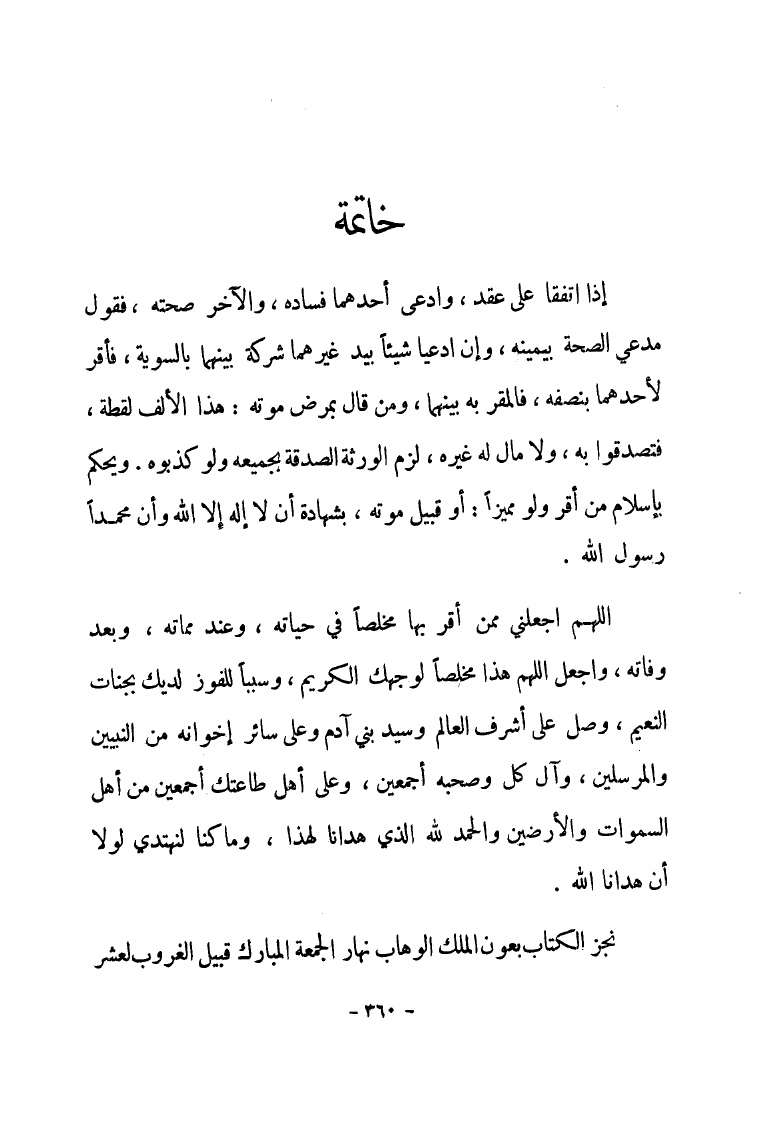 خاتمة
إذا اتفقا على عقد ، وادعى أحدهما فساده ، والآخر صحته ، فقول
مدعي الصحة بيمينه ، وإن ادعيا شيئاً بيد غيرهما شركة بينهما بالسوية ، فأقر
لأحدهما بنصفه ، فالمقر به بينهما ، ومن قال بمرض موته : هذا الألف لقطة ،
فتصدقوا به ، ولا مال له غيره ، لزم الورثة الصدقة بجميعه ولو كذبوه . ويحكم
بإسلام من أقر ولو مميزاً : أو قبيل موته ، بشهادة أن لا إله إلا الله وأن محمداً
رسول الله .
اللهم اجعلني ممن أقر بها مخلصاً في حياته ، وعند مماته ، وبعد
وفاته ، واجعل اللهم هذا مخلصاً لوجهك الكريم ، وسبباً للفوز لديك بجنات
النعيم ، وصل على أشرف العالم وسيد بني آدم وعلى سائر إخوانه من النبيين
والمرسلين ، وآل كل وصحبه أجمعين ، وعلى أهل طاعتك أجمعين من أهل
السموات والأرضين والحمد لله الذي هدانا لهذا ، وماكنا لنهتدي لولا
أن هدانا الله .
نجز الكتاب بعون الملك الوهاب نهار الجمعة المبارك قبيل الغروب لعشر
- ٣٦٠ -